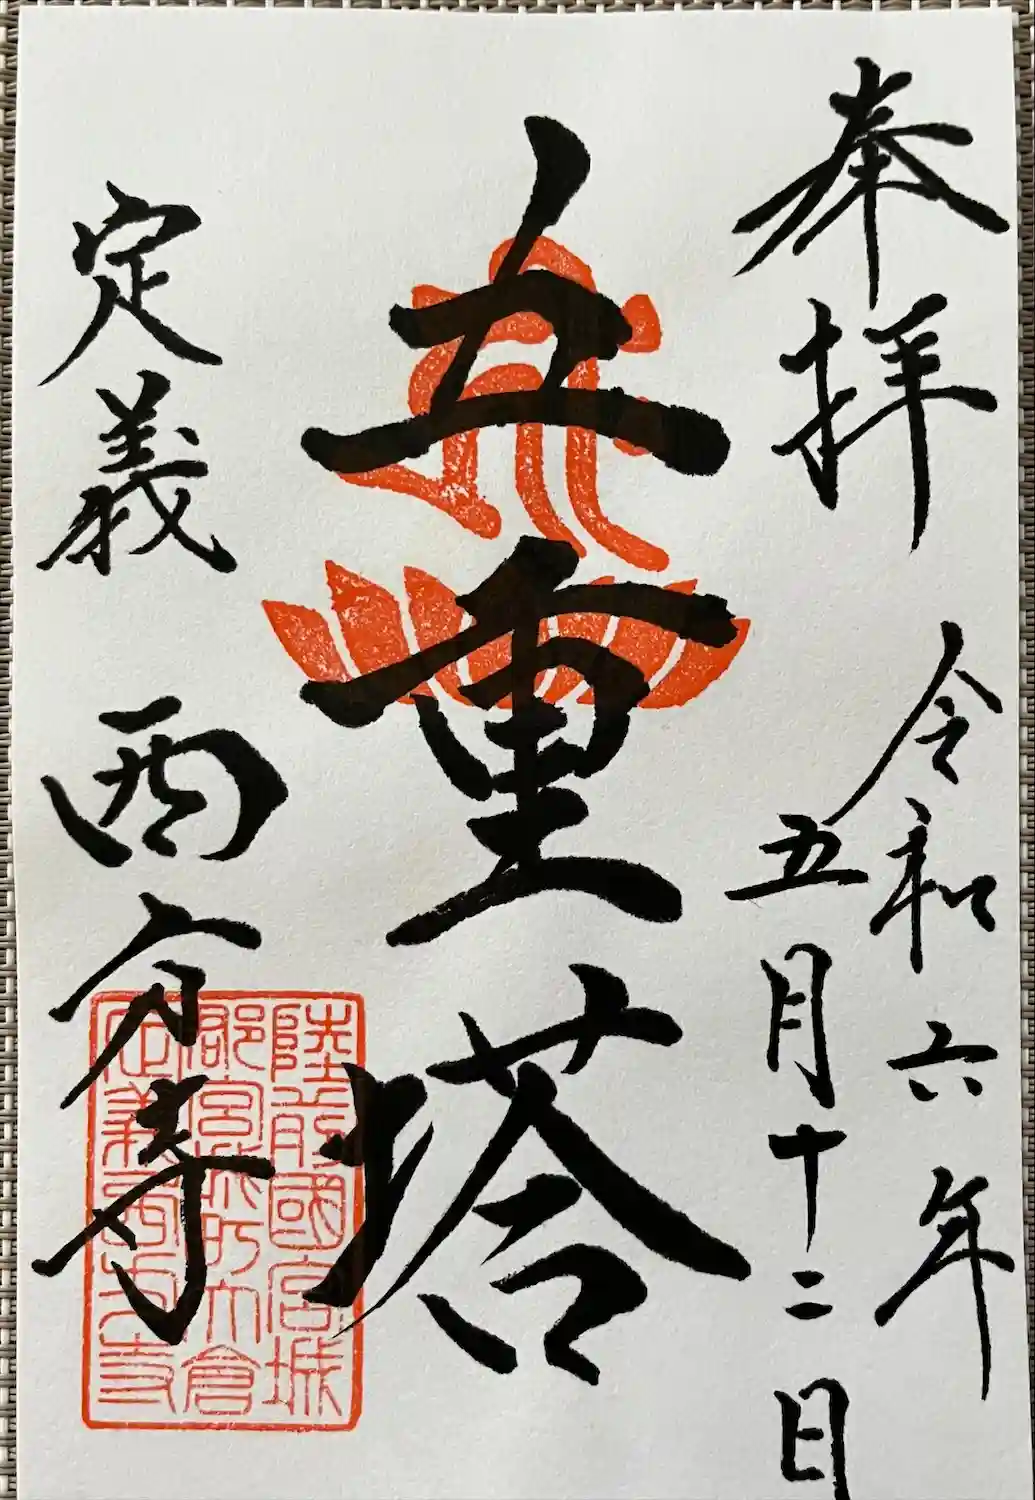 奉拝
令和六年
五月十二日
五重塔
定義
西方寺
陸前國宮城
郡宮城町大倉
定義西方寺